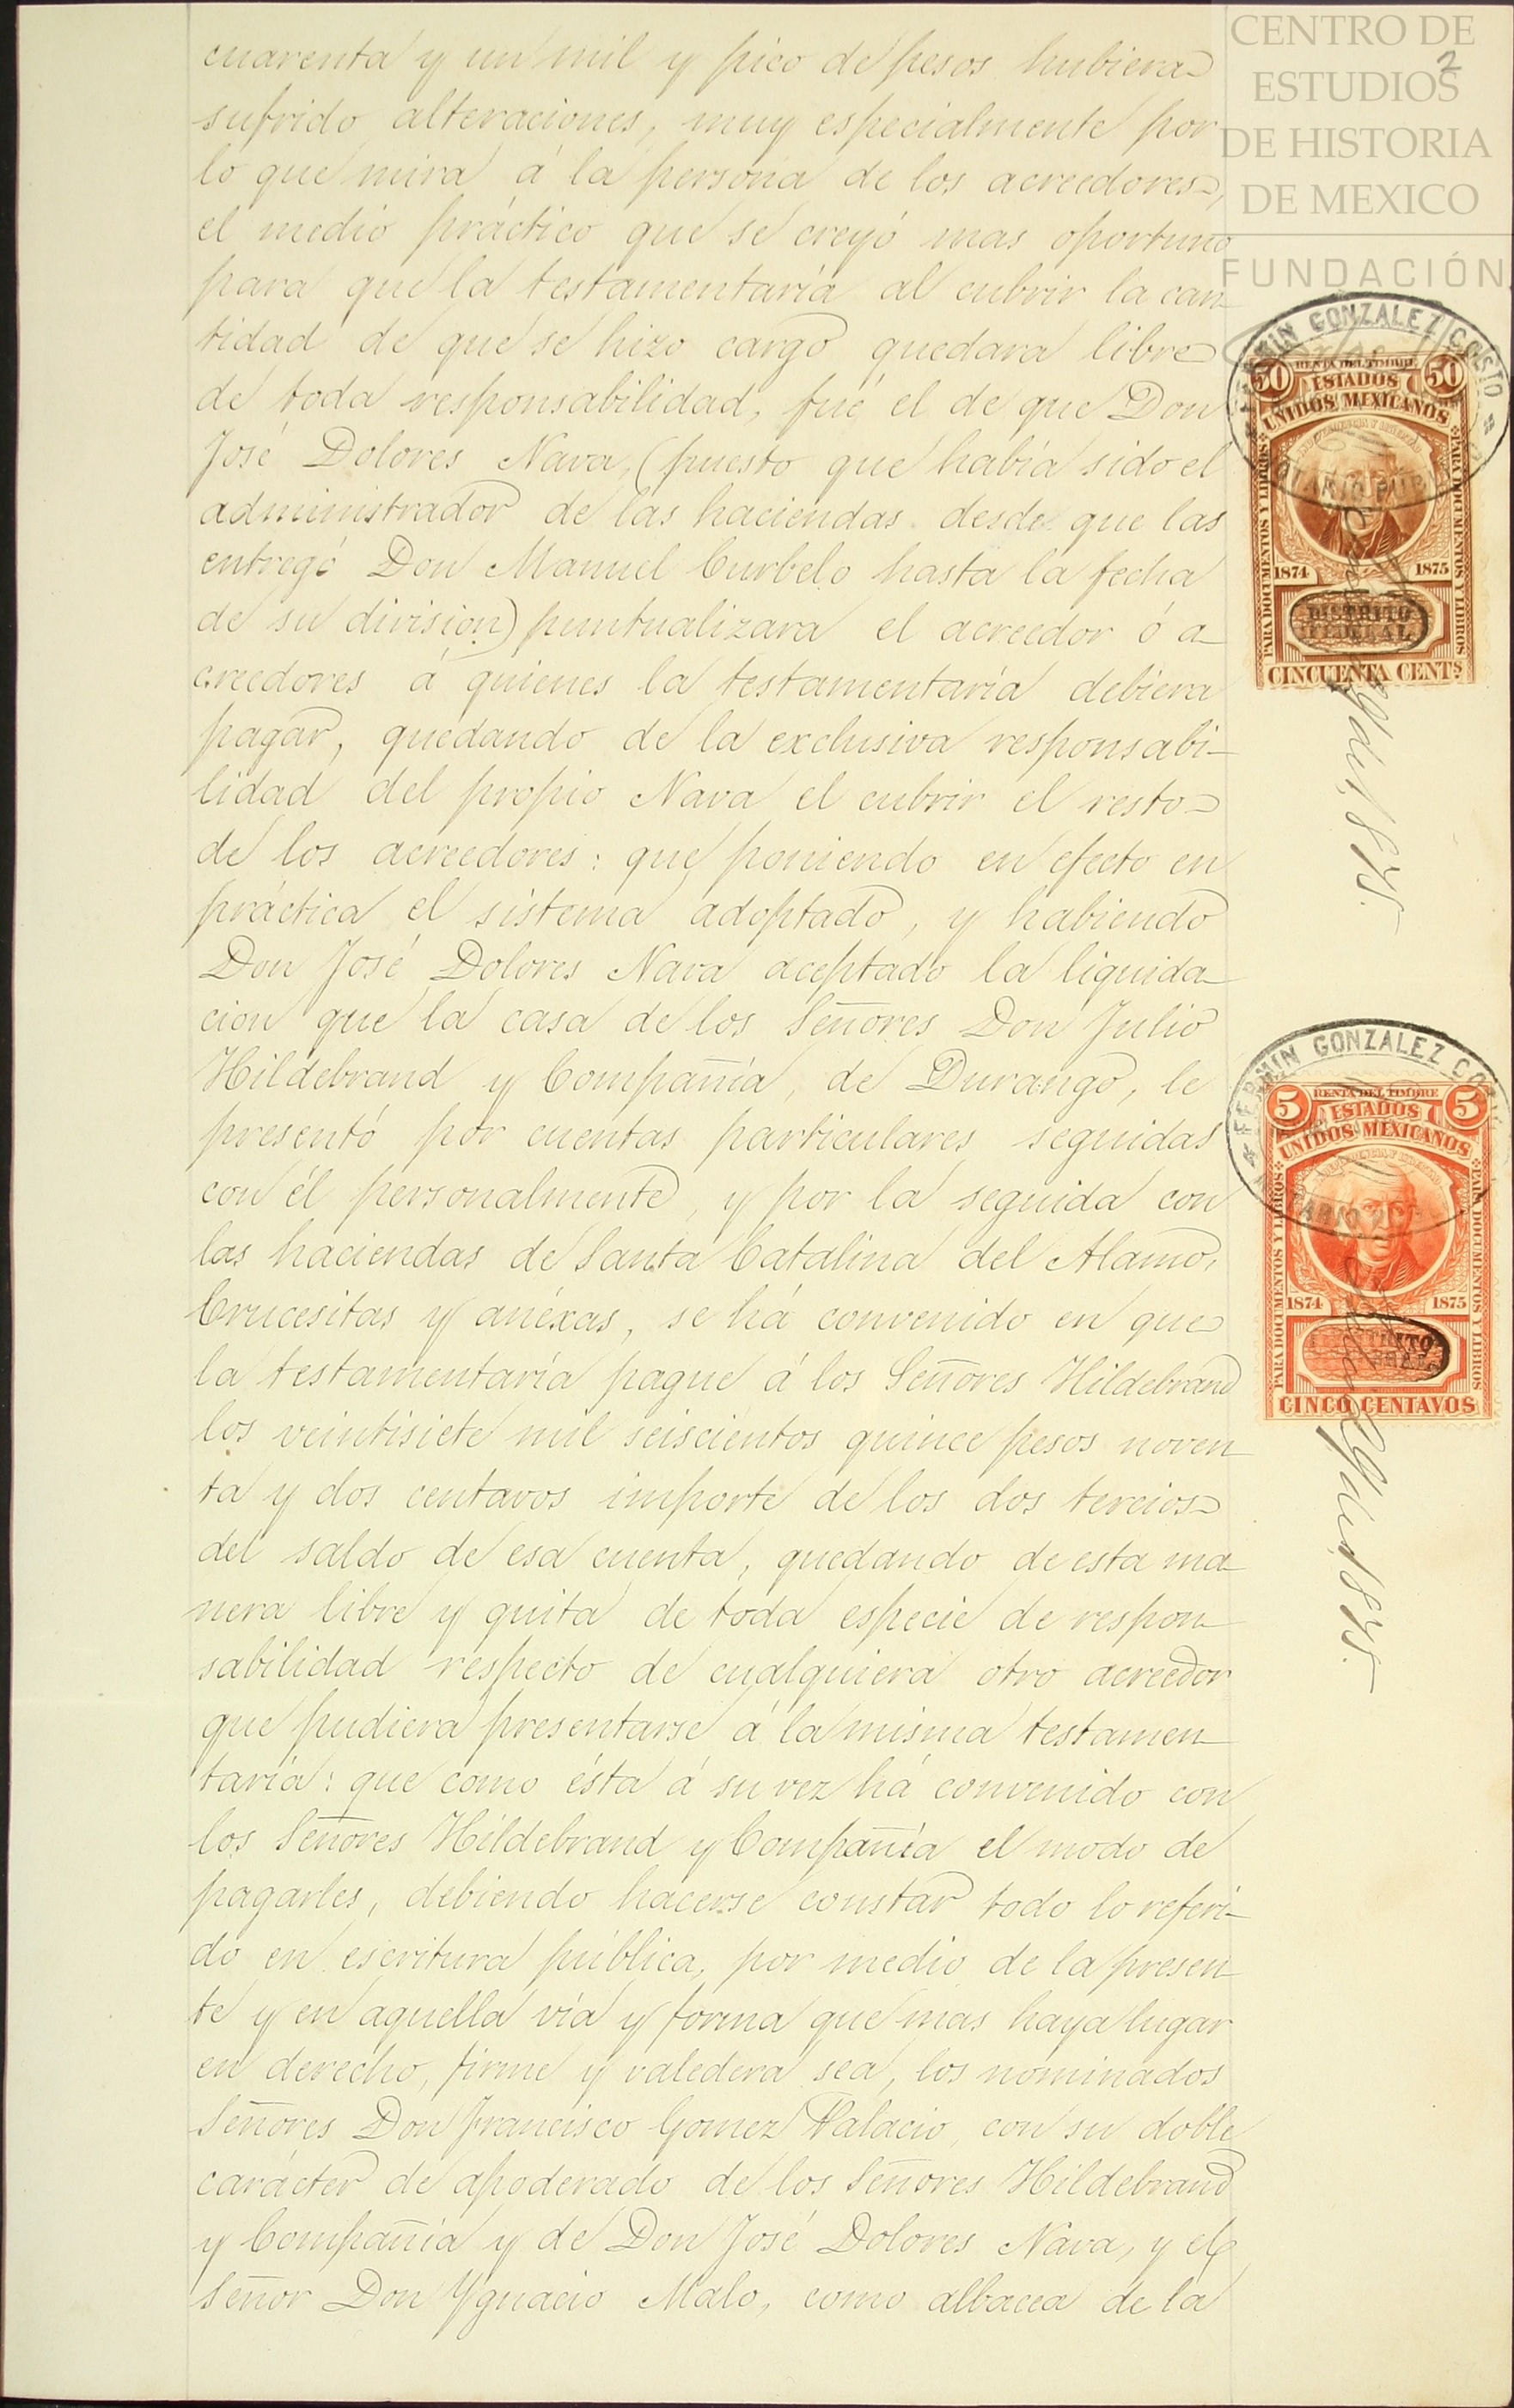 CENTRO DE
ESTUDIOS
DE HISTORIA
DE MEXICO
FUNDACIÓN
2
cuarenta y un mil y pico de pesos hubiera
sufrido alteraciones, muy especialmente por
lo que mira á la persona de los acreedores,
el medio práctico que se creyó mas oportuno
para que la testamentaría al cubrir la can
tidad de que se hizo cargo quedara libre
de toda responsabilidad, fué el de que Don
José Dolores Nava, (puesto que había sido el
administrador de las haciendas desde que las
entregó Don Manuel Curbelo hasta la fecha
de su division) puntualizara el acreedor ó a
creedores á quienes la testamentaría debiera
pagar, quedando de la exclusiva responsabi-
lidad del propio Nava el cubrir el resto
de los acreedores: que poniendo en efecto en
práctica el sistema adoptado, y habiendo
Don José Dolores Nava aceptado la liquida
cion que la casa de los Señores Don Julio
Hildebrand y Compañía de Durango, le
presentó por cuentas particulares seguidas
con él personalmente, y por la seguida con
las haciendas de Santa Catalina del Alamo,
Crucesitas y anéxas, se há convenido en que
la testamentaría pague á los Señores Hildebrand
los veintisiete mil seiscientos quince pesos noven
ta y dos centavos importe de los dos tercios
del saldo de esa cuenta, quedando de esta ma
nera libre y quita de toda especie de respon
sabilidad respecto de cualquiera otro acreedor
que pudiera presentarse á la misma testamen
taría: que como ésta á su vez há convenido con
los Señores Hildebrand y Compañía el modo de
pagarles, debiendo hacerse constar todo lo referi-
do en escritura pública, por medio de la presen
te y en aquella vía y forma que mas haya lugar
en derecho, firme y valedera sea, los nominados
Señores Don Francisco Gomez Palacio, con su doble
carácter de apoderado de los Señores Hildebrand
y Compañía y de Don José Dolores Nava, y el
Señor Don Ygnacio Malo, como albacea de la
FERMIN GONZALEZ COSIO
NOTARIO PUB
50 RENTA DEL TIMBRE 50
ESTADOS
UNIDOS MEXICANOS
PARA DOCUMENTOS Y LIBROS
PARA DOCUMENTOS Y LIBROS
1874 1875
DISTRITO
FEDERAL
CINCUENTA CENTS
1875.
FERMIN GONZALEZ COSIO
5 RENTA DEL TIMBRE 5
ESTADOS
UNIDOS MEXICANOS
PARA DOCUMENTOS Y LIBROS
PARA DOCUMENTOS Y LIBROS
1874 1875
DISTRITO
FEDERAL
CINCO CENTAVOS
1875.